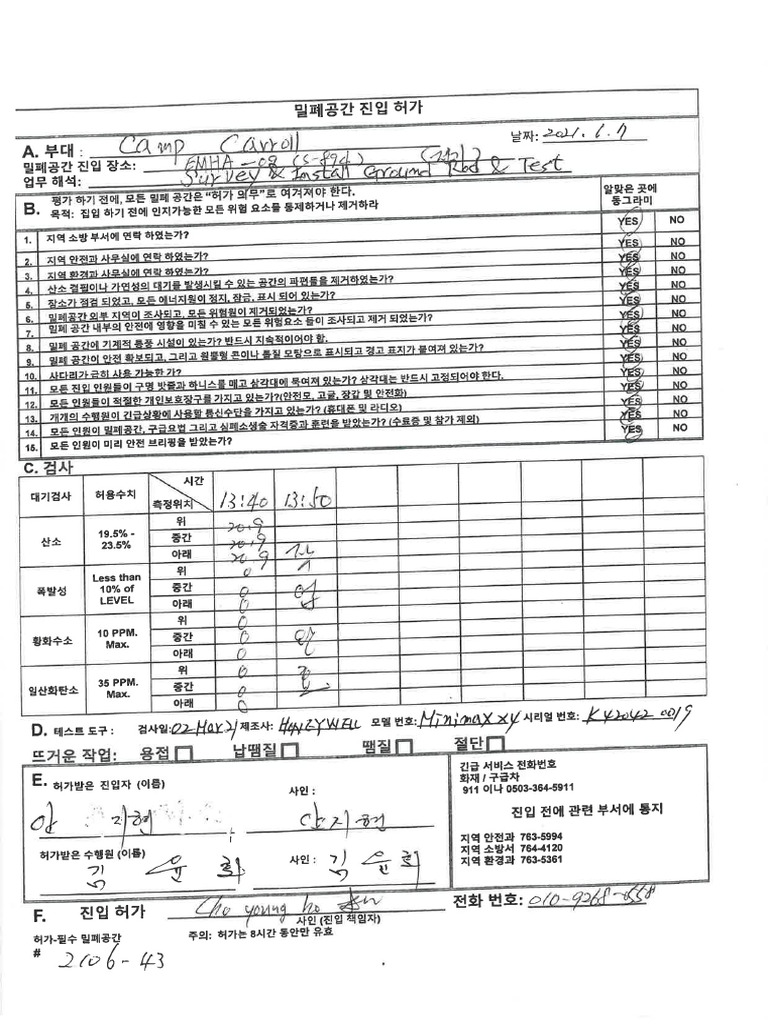 밀폐공간 진입 허가
A. 부대 : Camp Carroll 날짜: 2021. 6. 7
밀폐공간 진입 장소: EMHA-08
업무 해석: Survey & Install Ground Rod & Test
B. 평가 하기 전에, 모든 밀폐 공간은 "허가 의무"로 여겨져야 한다.
목적: 집입 하기 전에 인지가능한 모든 위험 요소를 통제하거나 제거하라
알맞은 곳에 동그라미
1. 지역 소방 부서에 연락 하였는가? YES NO
2. 지역 안전과 사무실에 연락 하였는가? YES NO
3. 지역 환경과 사무실에 연락 하였는가? YES NO
4. 산소 결핍이나 가연성의 대기를 발생시킬 수 있는 공간의 파편들을 제거하였는가? YES NO
5. 장소가 점검 되었고, 모든 에너지원이 정지, 잠금, 표시 되어 있는가? YES NO
6. 밀폐공간 외부 지역이 조사되고, 모든 위험원이 제거되었는가? YES NO
7. 밀폐 공간 내부의 안전에 영향을 미칠 수 있는 모든 위험요소 들이 조사되고 제거 되었는가? YES NO
8. 밀폐 공간에 기계적 통풍 시설이 있는가? 반드시 지속적이어야 함. YES NO
9. 밀폐 공간이 안전 확보되고, 그리고 원뿔형 콘이나 톱질 모탕으로 표시되고 경고 표지가 붙여져 있는가? YES NO
10. 사다리가 급히 사용 가능한 가? YES NO
11. 모든 진입 인원들이 구명 밧줄과 하니스를 매고 삼각대에 묶여져 있는가? 삼각대는 반드시 고정되어야 한다. YES NO
12. 모든 인원들이 적절한 개인보호장구를 가지고 있는가?(안전모, 고글, 장갑 및 안전화) YES NO
13. 개개의 수행원이 긴급상황에 사용할 통신수단을 가지고 있는가? (휴대폰 및 라디오) YES NO
14. 모든 인원이 밀폐공간, 구급요법 그리고 심폐소생술 자격증과 훈련을 받았는가? (수료증 및 참가 제외) YES NO
15. 모든 인원이 미리 안전 브리핑을 받았는가? YES NO
C. 검사
대기검사 허용수치 시간 측정위치 13:40 13:50
산소 19.5% - 23.5% 위 20.9
중간 20.9
아래 20.9
폭발성 Less than 10% of LEVEL 위 0
중간 0
아래 0
황화수소 10 PPM. Max. 위 0
중간 0
아래 0
일산화탄소 35 PPM. Max. 위 0
중간 0
아래 0
작업완료
D. 테스트 도구 : 검사일: 02 Mar 21 제조사: HONEYWELL 모델 번호: Minimax x4 시리얼 번호: K42042 0019
뜨거운 작업: 용접 납땜질 땜질 절단
E. 허가받은 진입자 (이름) 사인 :
안 지현 안지현
허가받은 수행원 (이름) 사인 :
김 윤희 김 윤희
긴급 서비스 전화번호
화재 / 구급차
911 이나 0503-364-5911
진입 전에 관련 부서에 통지
지역 안전과 763-5994
지역 소방서 764-4120
지역 환경과 763-5361
F. 진입 허가 Cho young ho 전화 번호: 010-9268-8558
사인 (진입 책임자)
허가-필수 밀폐공간 주의: 허가는 8시간 동안만 유효
# 2106-43